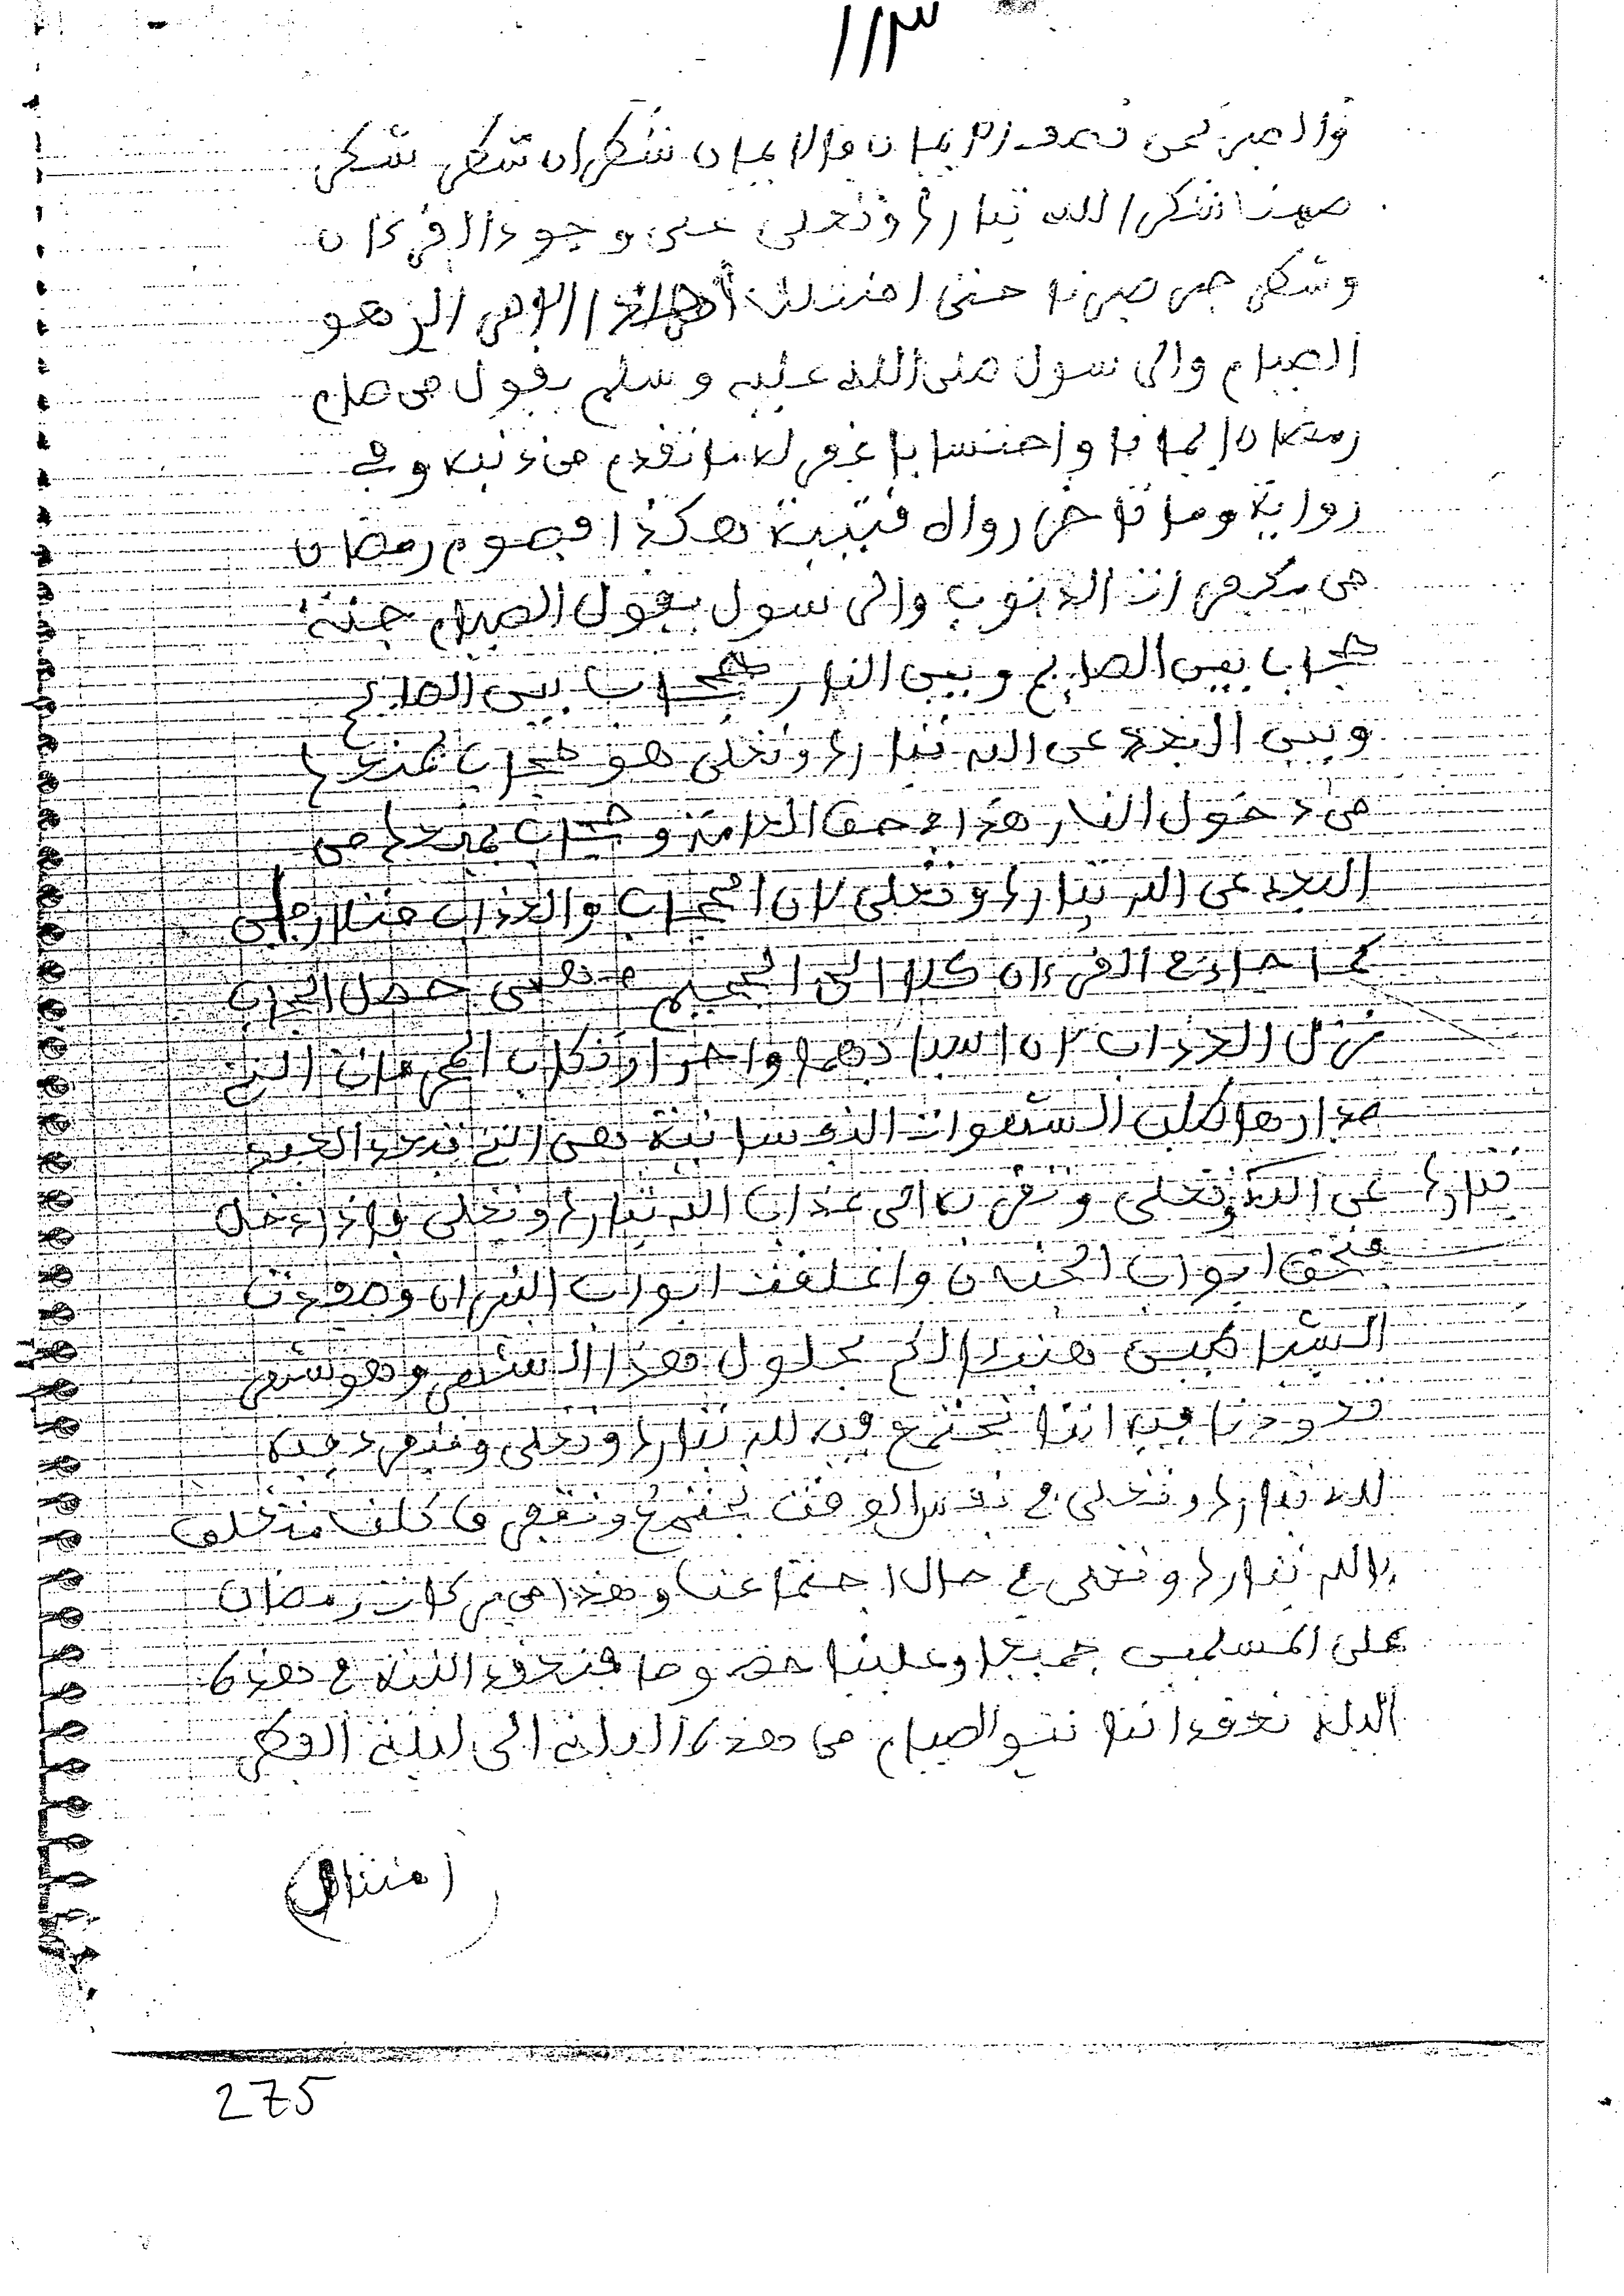 ١١٣
والصبر نصف الايمان والايمان شطران شكر
صمنا شكرا لله تبارك وتعلى على وجود القرءان
وشكر صبرنا حتى امتثلنا هذا الامر الذ هو
الصيام والرسول صلى الله عليه وسلم يقول من صام
رمضان ايمانا واحتسابا غفر له ما تقدم من ذنبه وفي
رواية وما تاخر رواه قتيبة هكذا فصوم رمضان
من مكفرات الذنوب والرسول يقول الصيام جنة
حجاب بين الصايم وبين النار حجاب بين الصايم
وبين البعد عن الله تبارك وتعلى هو حجاب يمنعه
من دخول النار هذا في حق العامة وحجاب يمنعه من
البعد عن الله تبارك وتعلى لان الحجاب والعذاب متلازمان
كما جاء في القرءان كلا الجحيم فمتى حصل الحجاب
نزل العذاب لان اسبابهما واحد ارتكاب المحرمات التي
مدارها كلها الشهوات النفسانية هي التي تبعد العبد
تبارك عن الله وتعلى وتقربه الى عذاب الله تبارك وتعلى واذا دخل
فتحت ابواب الجنة وغلقت ابواب النيران وصفدت
الشياطين هنيئا لكم بحلول هذا الشهر وهو شهر
تعودنا فيه اننا نجتمع فيه لله تبارك وتعلى ونتفرد فيه
لله تبارك وتعلى في نفس الوقت نجتمع ونتفرد كلنا متعلق
بالله تبارك وتعلى في حال اجتماعنا وهذا من بركات رمضان
على المسلمين جميعا وعلينا خصوصا فنعقد النية في هذه
الليلة نعقد اننا ننو الصيام من هذه الليلة الى ليلة الفطر
امتثال
275